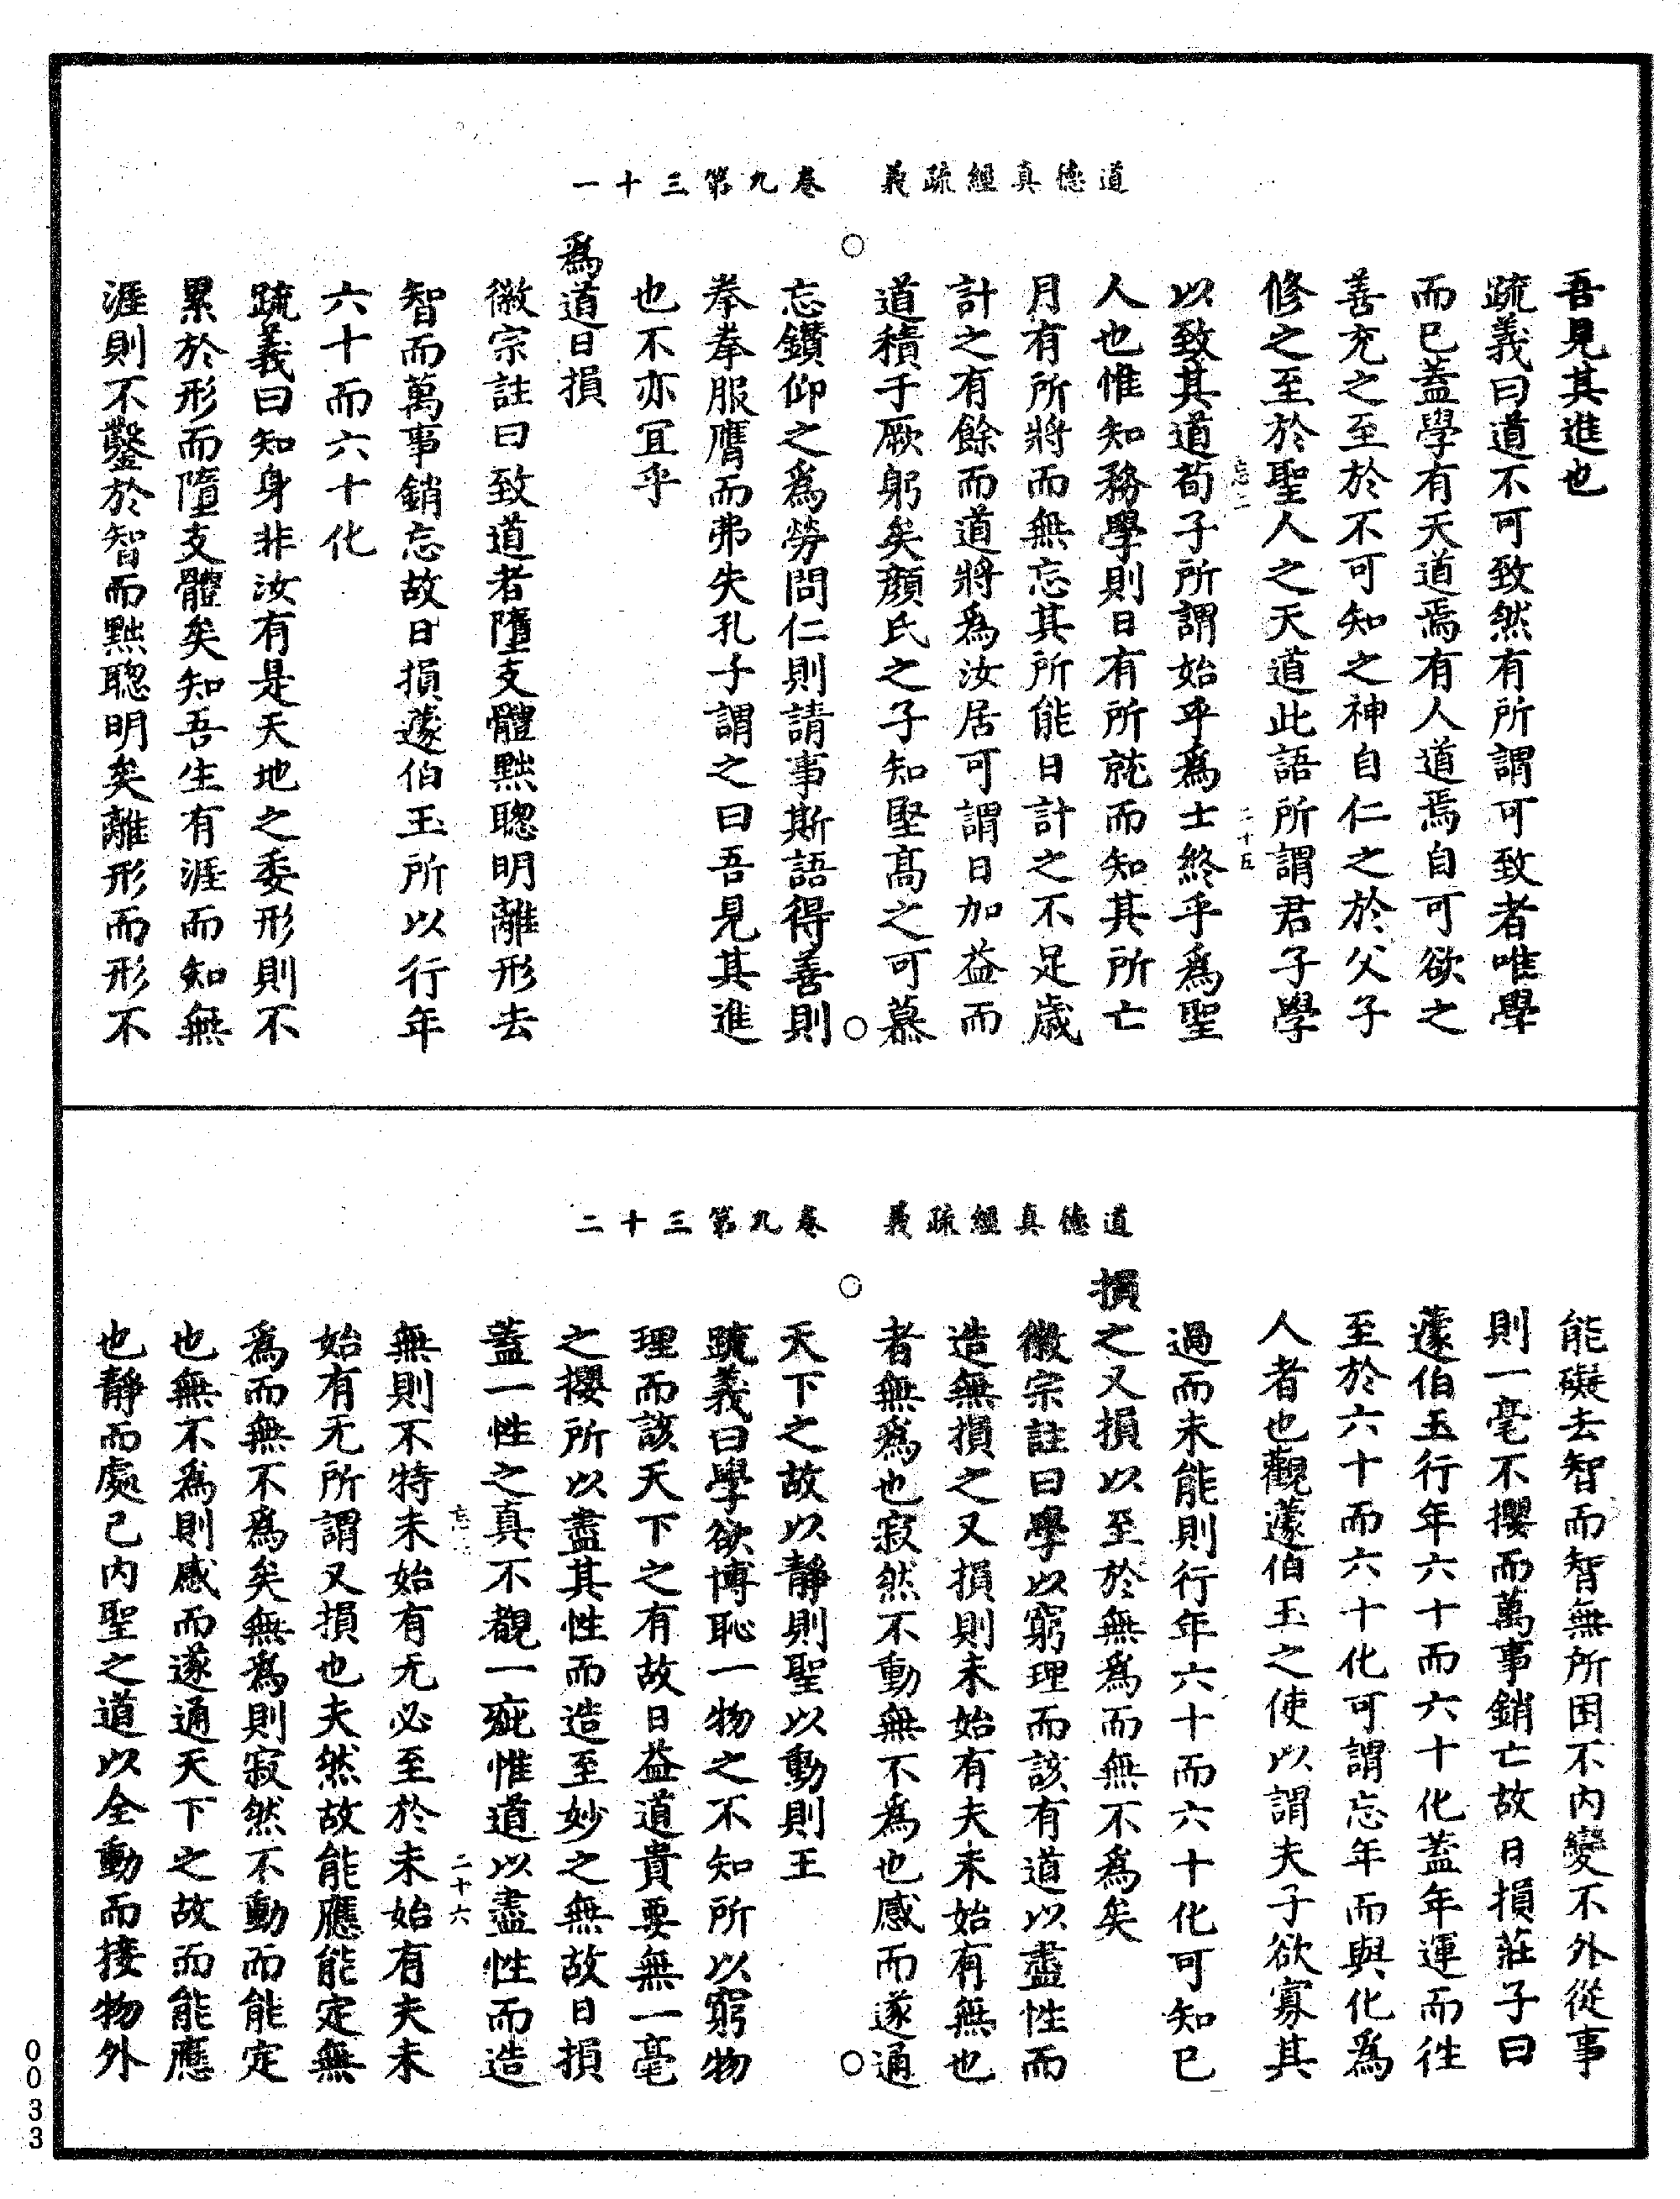 道德真經疏義　卷九第三十一
吾見其進也
疏義曰道不可致然有所謂可致者唯學
而已蓋學有天道焉有人道焉自可欲之
善充之至於不可知之神自仁之於父子
修之至於聖人之天道此語所謂君子學
忘二　二十五
以致其道荀子所謂始乎為士終乎為聖
人也惟知務學則日有所就而知其所亡
月有所將而無忘其所能日計之不足歲
計之有餘而道將為汝居可謂日加益而
道積于厥躬矣顏氏之子知堅高之可慕
忘鑽仰之為勞問仁則請事斯語得善則
拳拳服膺而弗失孔子謂之曰吾見其進
也不亦宜乎
為道日損
徽宗註曰致道者墮支體黜聰明離形去
智而萬事銷忘故日損蘧伯玉所以行年
六十而六十化
疏義曰知身非汝有是天地之委形則不
累於形而墮支體矣知吾生有涯而知無
涯則不鑿於智而黜聰明矣離形而形不
道德真經疏義　卷九第三十二
能礙去智而智無所困不內變不外從事
則一毫不攖而萬事銷亡故日損莊子曰
蘧伯玉行年六十而六十化蓋年運而徃
至於六十而六十化可謂忘年而與化為
人者也觀蘧伯玉之使以謂夫子欲寡其
過而未能則行年六十而六十化可知已
損之又損以至於無為而無不為矣
徽宗註曰學以窮理而該有道以盡性而
造無損之又損則未始有夫未始有無也
者無為也寂然不動無不為也感而遂通
天下之故以靜則聖以動則王
疏義曰學欲博恥一物之不知所以窮物
理而該天下之有故日益道貴要無一毫
之攖所以盡其性而造至妙之無故日損
蓋一性之真不覩一疵惟道以盡性而造
忘　二十六
無則不特未始有无必至於未始有夫未
始有无所謂又損也夫然故能應能定無
為而無不為矣無為則寂然不動而能定
也無不為則感而遂通天下之故而能應
也靜而處己內聖之道以全動而接物外
0033